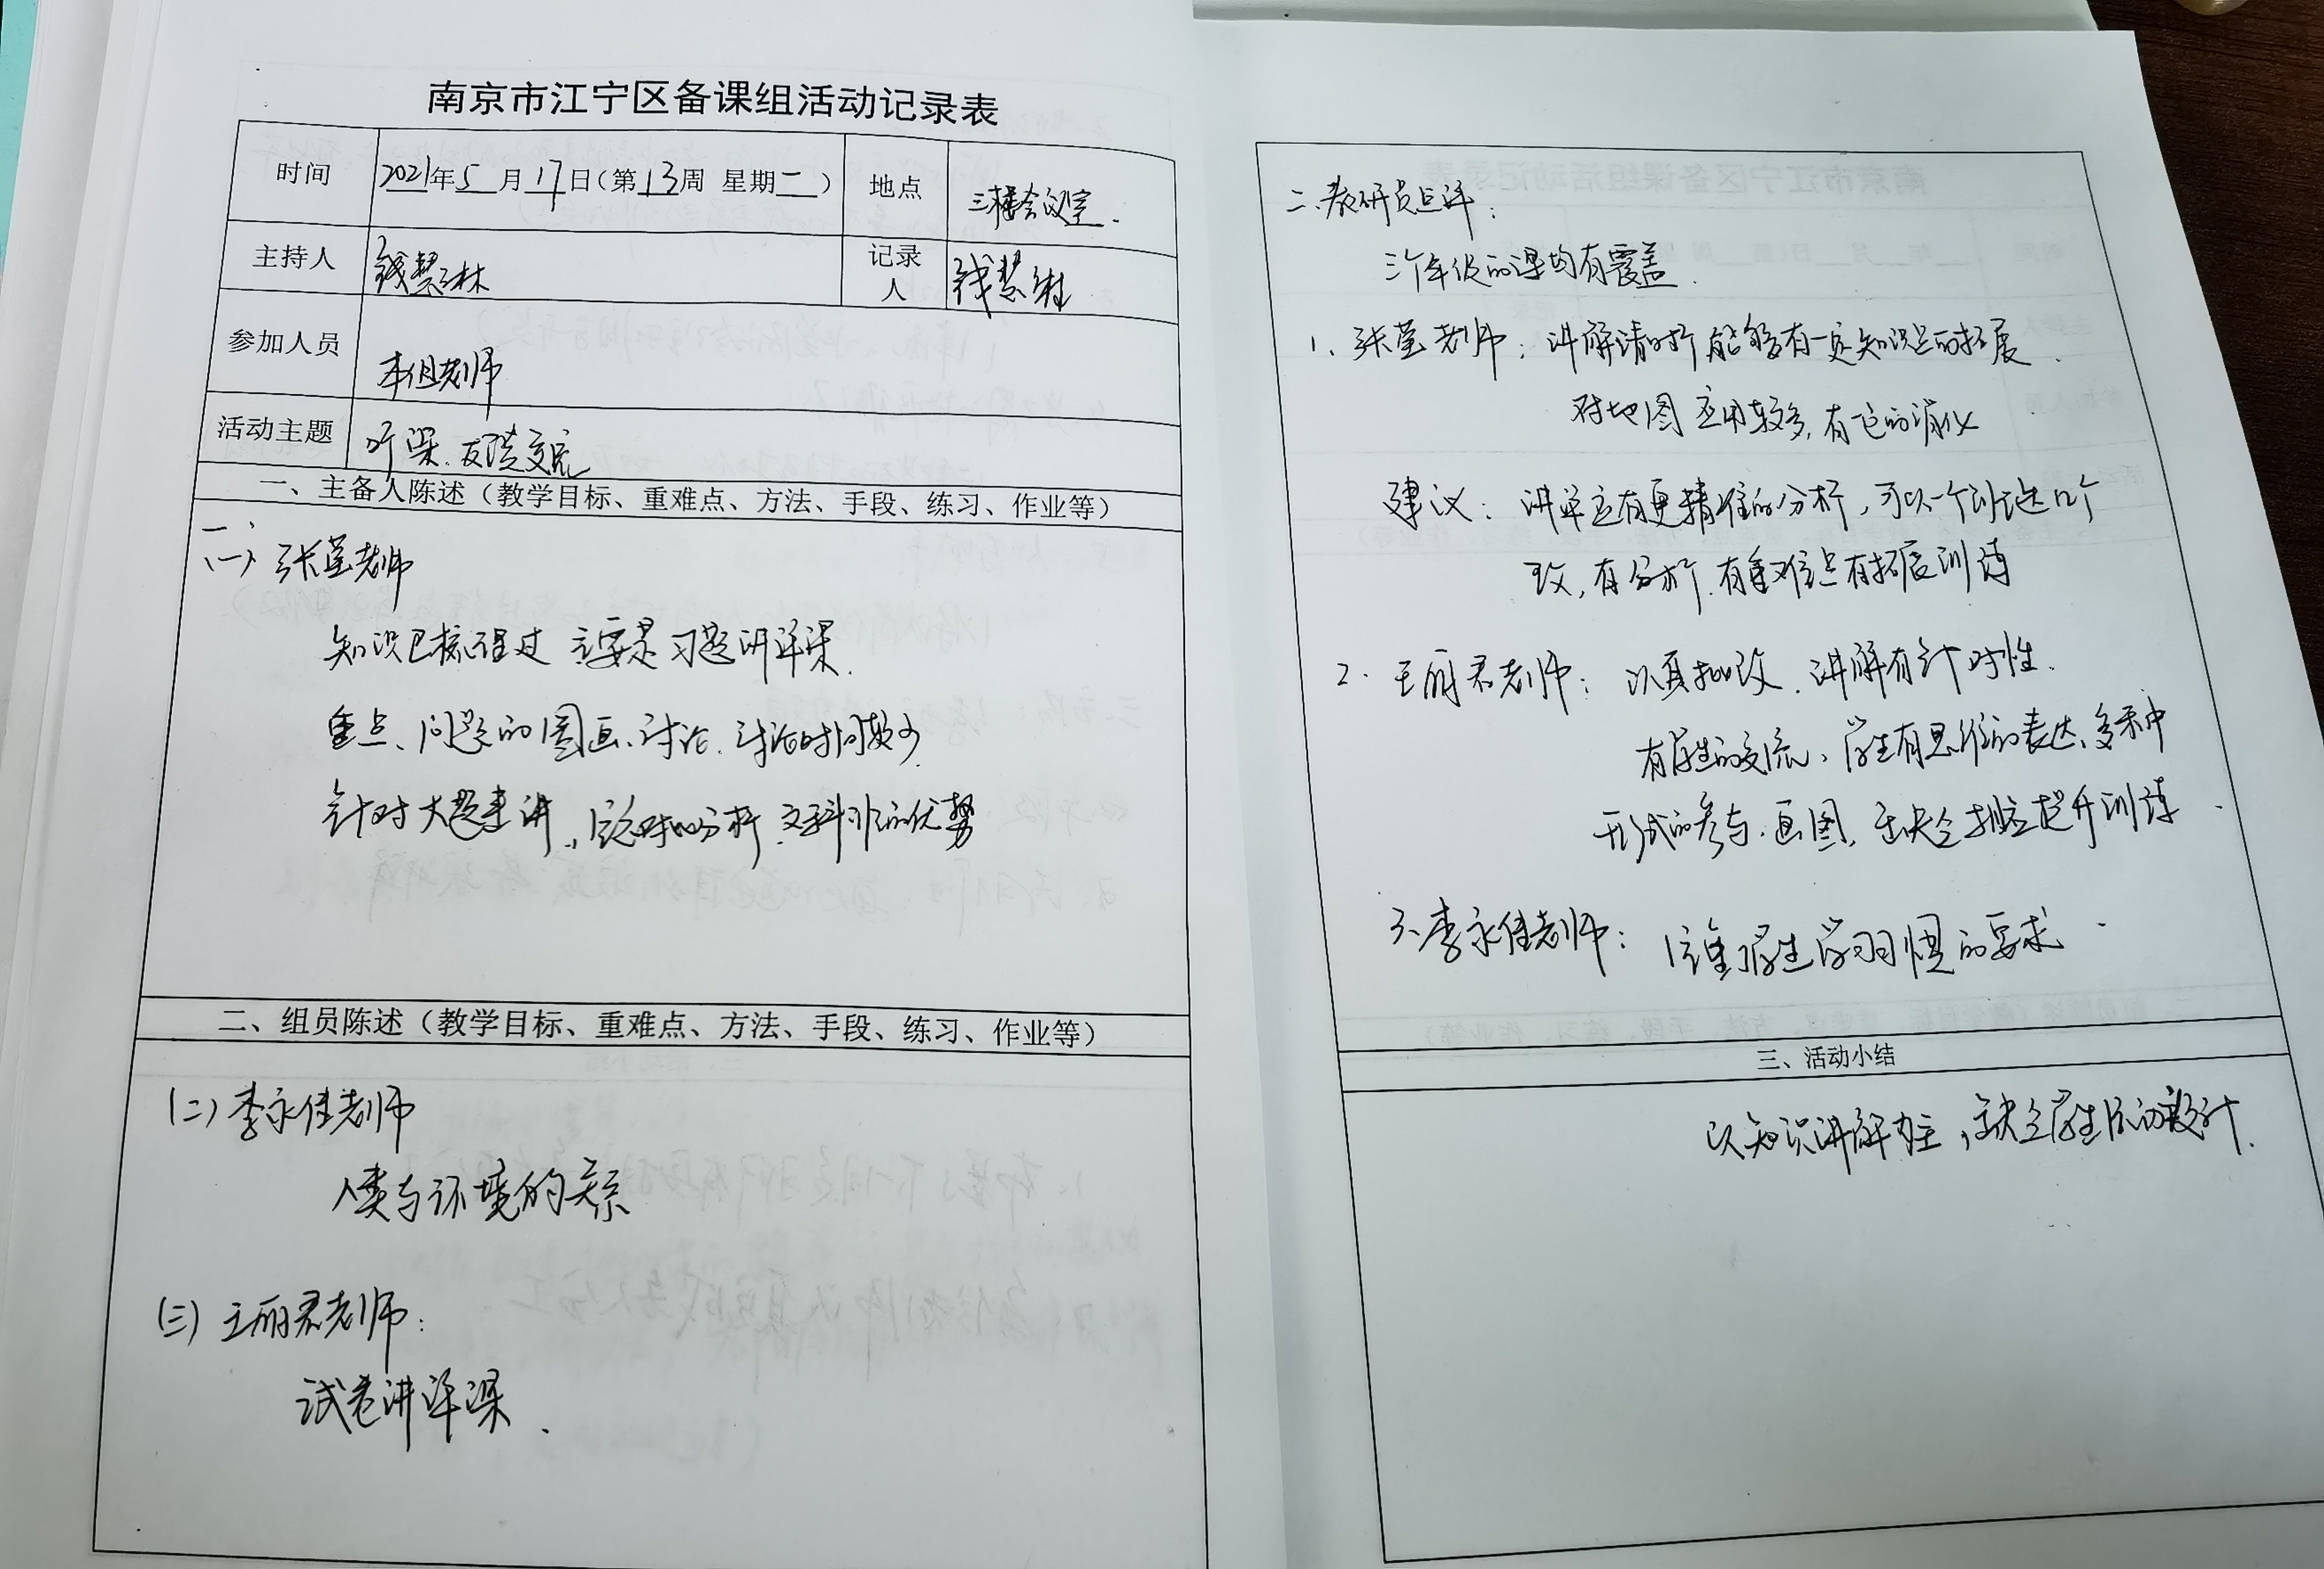 南京市江宁区备课组活动记录表
时间 2021年5月17日(第13周 星期二) 地点 三楼会议室.
主持人 钱慧林 记录人 钱慧林
参加人员 本组老师
活动主题 听课.反馈交流
一、主备人陈述(教学目标、重难点、方法、手段、练习、作业等)
一、
(一) 张莹老师
知识已梳理过 主要是习题讲评课.
重点、问题的圈画、讨论. 讨论时间较少
针对大题来讲, 分析.文科 的优势
二、组员陈述(教学目标、重难点、方法、手段、练习、作业等)
(二) 李永佳老师
人类与环境的关系
(三) 王丽君老师:
试卷讲评课.
二.教研员点评:
三个年级的课均有覆盖.
1、张莹老师: 讲解清晰 能够有一定知识点的拓展.
对地图应用较多,有它的
建议: 讲评应有更精准的分析,可以一个班选几个
改,有分析.有重难点有拓展训练
2. 王丽君老师: 认真批改.讲解有针对性.
有学生的交流、学生有思维的表达、多种
形式的参与.画图, 缺乏 提升训练.
3、李永佳老师: 注重学生学习习惯的要求.
三、活动小结
以知识讲解为主,缺乏学生活动设计.